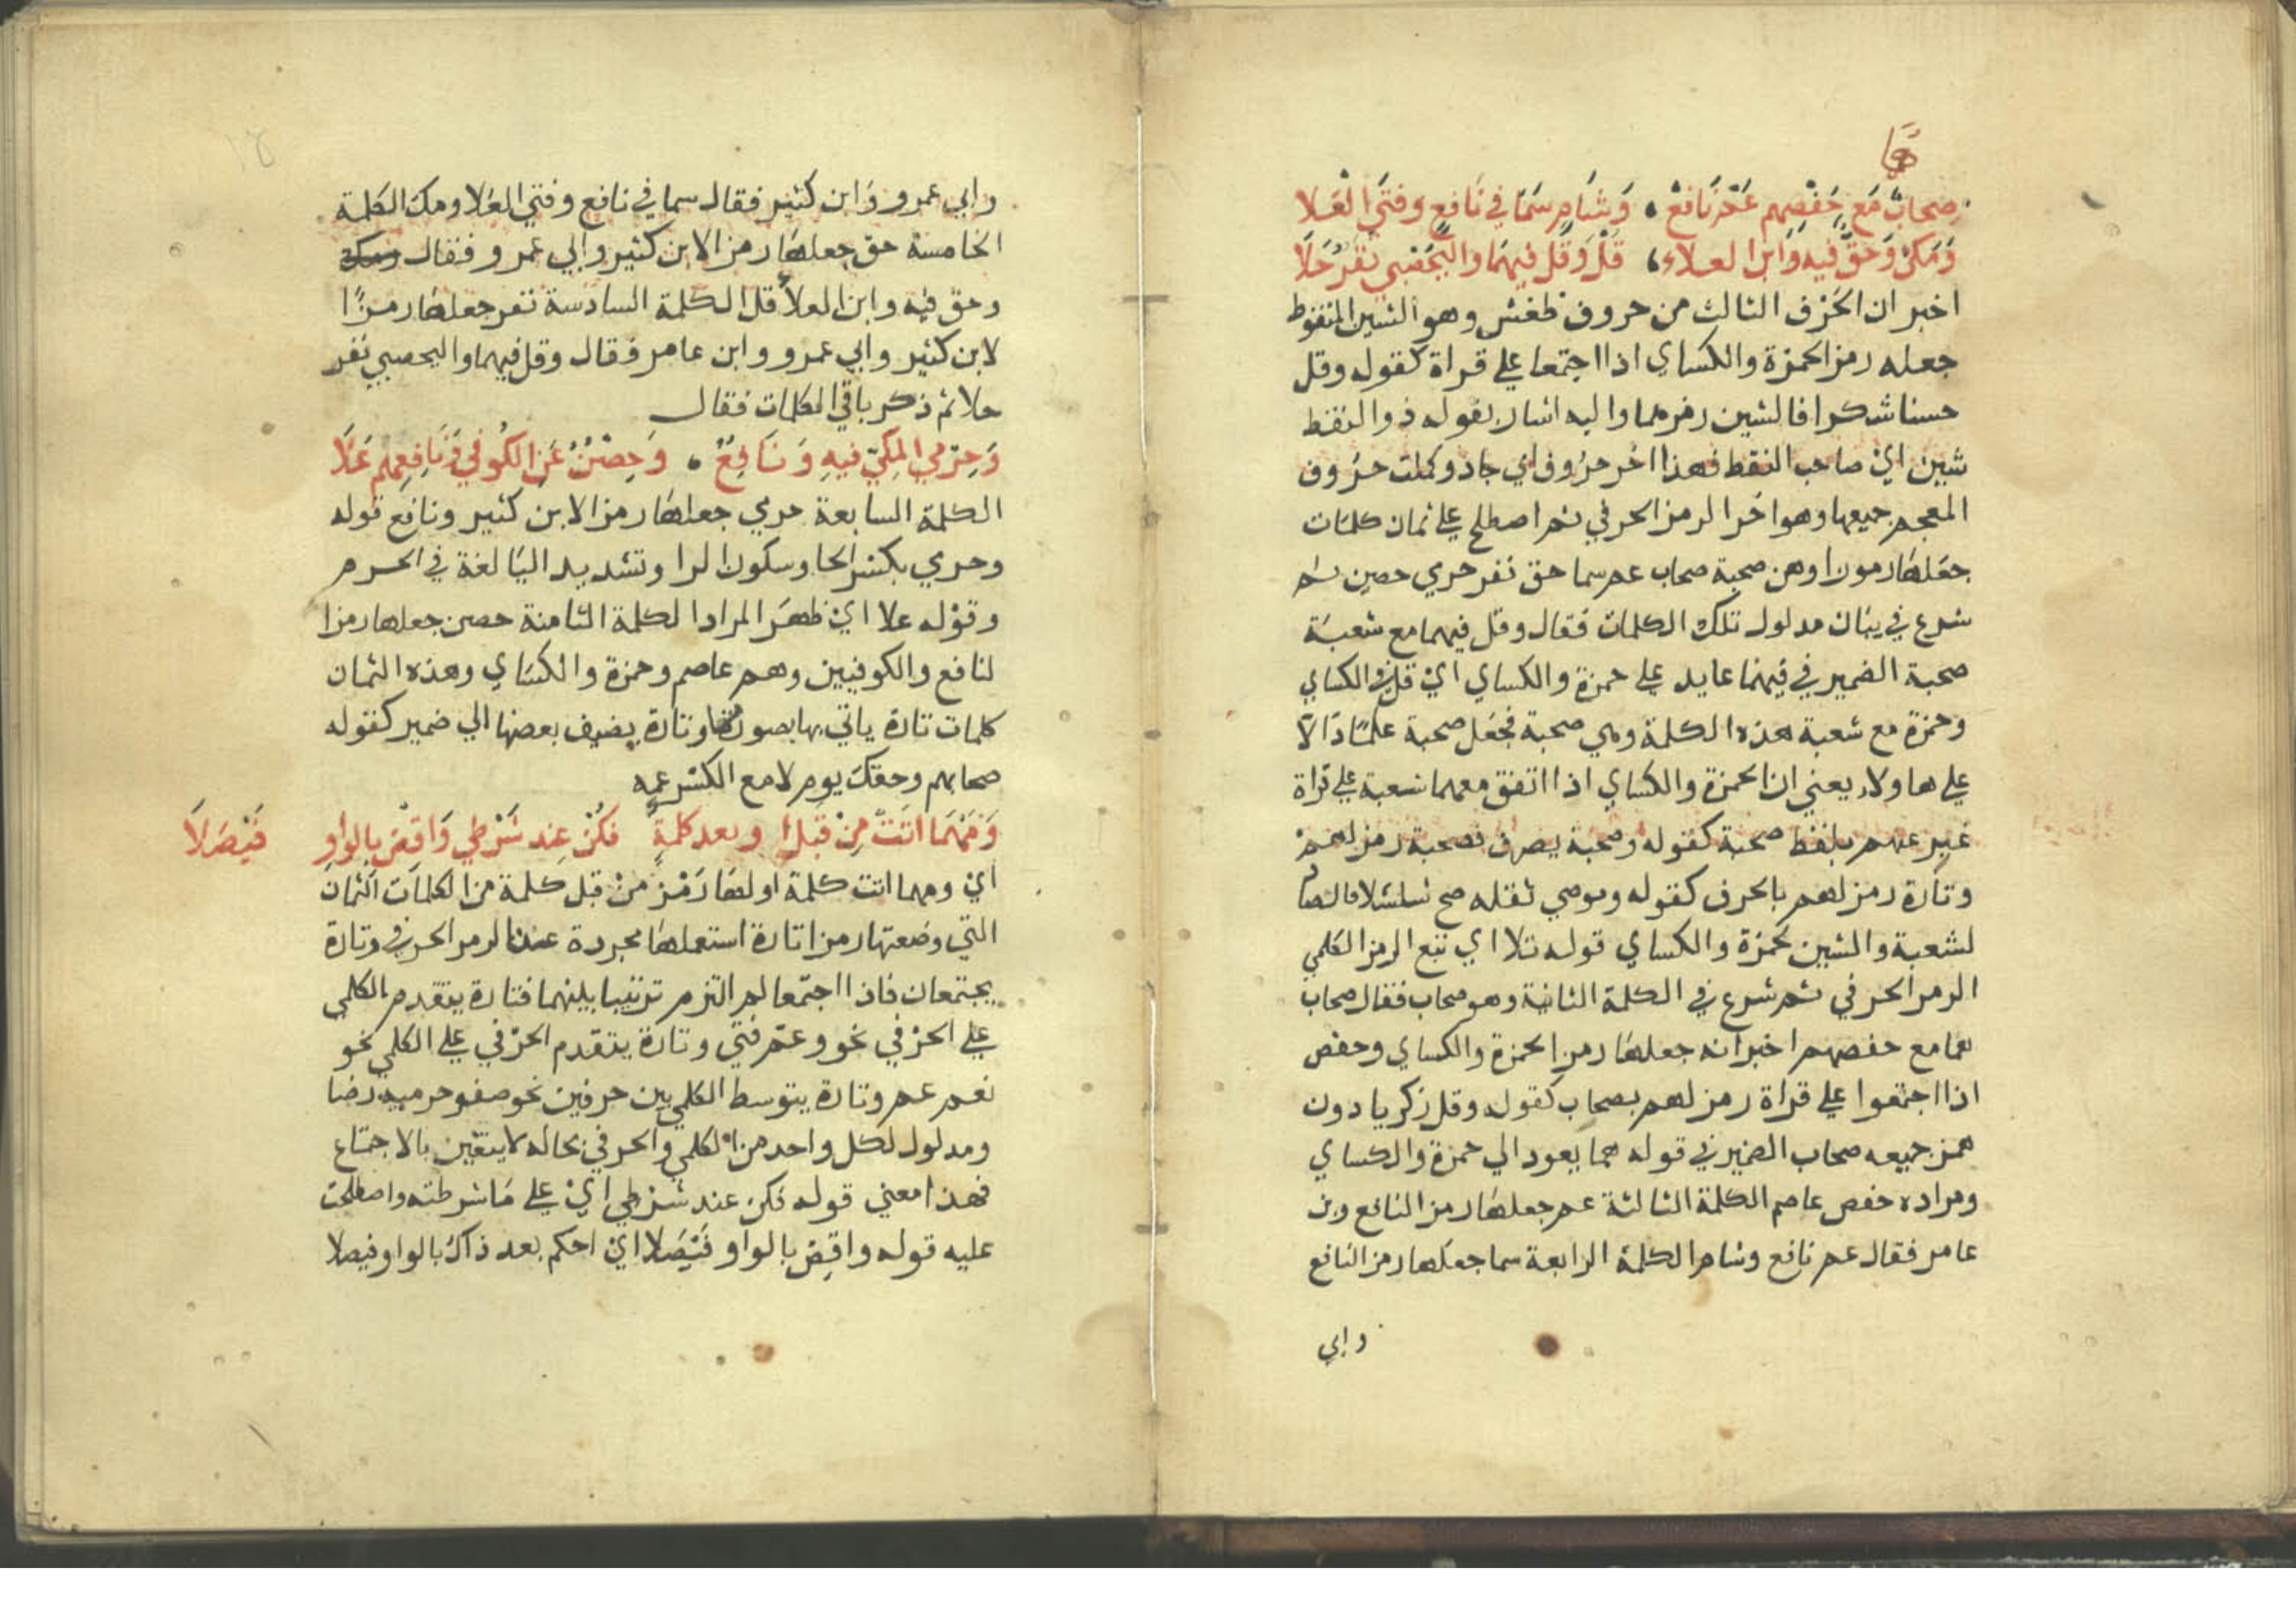 هما
صحاب مع حفصهم عم نافع وشام سما في نافع وفتى العلا
ومك وحق فيه وابن العلاء قل وقل فيهما واليحصبي نفر حلا
اخبر ان الحرف الثالث من حروف ظغش وهو الشين المنقوط
جعله رمزا لحمزة والكساي اذا اجتمعا علي قراة كقوله وقل
حسنا شكرا فالشين رمزهما واليه اشار بقوله ذو النقط
شين اي صاحب النقط فهذا اخر حروف ابي جاد وكملت حروف
المعجم جميعها وهو اخر الرمز الحرفي ثم اصطلح علي ثمان كلمات
جعلها رموزا وهن صحبة صحاب عم سما حق نفر حرمي حصن ثم
شرع في بيان مدلول تلك الكلمات فقال وقل فيهما مع شعبة
صحبة الضمير في فيهما عايد علي حمزة والكساي اي قل في الكساي
وحمزة مع شعبة هذه الكلمة وهي صحبة فجعل صحبة علما دالا
علي هاولاء يعني ان حمزة والكساي اذا اتفق معهما شعبة علي قراة
عبر عنهم بلفظ صحبة كقوله وصحبة يصرف فصحبة رمز لهم
وتارة رمز لهم بالحرف كقوله وموصي ثقله صح شلشلا فالصاد
لشعبة والشين لحمزة والكساي قوله تلا اي تبع الرمز الكلمي
الرمز الحرفي ثم شرع في الكلمة الثانية وهو صحاب فقال صحاب
هما مع حفصهم اخبر انه جعلها رمزا لحمزة والكساي وحفص
اذا اجتمعوا علي قراة رمز لهم بصحاب كقوله وقل زكريا دون
همز جميعه صحاب الضمير في قوله هما يعود الي حمزة والكساي
ومراده حفص عاصم الكلمة الثالثة عم جعلها رمزا لنافع وبن
عامر فقال عم نافع وشام الكلمة الرابعة سما جعلها رمزا لنافع
وابي
وابي عمرو وابن كثير فقال سما في نافع وفتي العلا ومك الكلمة
الخامسة حق جعلها رمزا لابن كثير وابي عمرو فقال ومك
وحق فيه وابن العلا قل الكلمة السادسة نفر جعلها رمزا
لابن كثير وابي عمرو وابن عامر فقال وقل فيهما واليحصبي نفر
حلا ثم ذكر باقي الكلمات فقال
وحرمي المكي فيه ونافع وحصن عن الكوفي ونافعهم علا
الكلمة السابعة حرمي جعلها رمزا لابن كثير ونافع قوله
وحرمي بكسر الحا وسكون الرا وتشديد اليا لغة في الحرم
وقوله علا اي ظهر المراد الكلمة الثامنة حصن جعلها رمزا
لنافع والكوفيين وهم عاصم وحمزة والكساي وهذه الثمان
كلمات تارة ياتي بها بصورتها وتارة يضيف بعضها الي ضمير كقوله
صحابهم وحقك يوم لا مع الكسر عمه
ومهما اتت من قبل او بعد كلمة فكن عند شرطي واقض بالواو فيصلا
اي ومهما اتت كلمة اولها رمز من قبل كلمة من الكلمات الثمان
التي وضعتها رمزا تارة استعملها مجردة عن الرمز الحرفي وتارة
يجتمعان فاذا اجتمعا لم التزم ترتيبا بينهما فتارة يتقدم الكلمي
علي الحرفي نحو وعم فتي وتارة يتقدم الحرفي علي الكلمي نحو
نعم عم وتارة يتوسط الكلمي بين حرفين نحو صفو حرميه رضا
ومدلول لكل واحد من الكلمي والحرفي بحاله لا يتغير بالاجتماع
فهذا معني قوله فكن عند شرطي اي علي ما شرطته واصطلحت
عليه قوله واقض بالواو فيصلا اي احكم بعد ذاك بالواو فيصلا